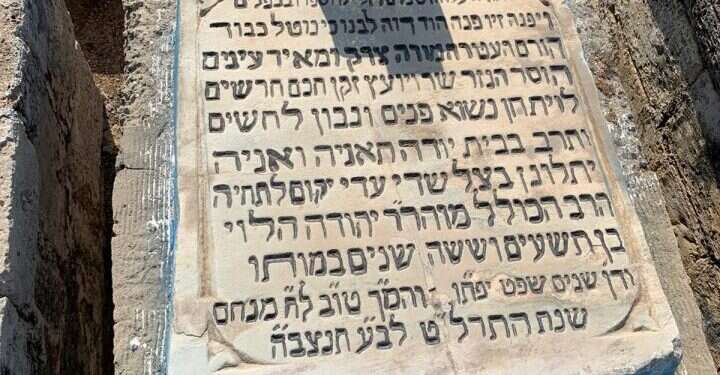 ויפנה זיו פנה הוד רוה לבנונינו נוטל כבוד
הורם העטרת מורה צדק ומאיר עינים
הוסר הנזר שר ויועץ זקן חכם חרשים
לויתחן נשוא פנים ונבון לחשים
ותרב בבית יודה תאניה ואניה
יתלונן בצל שדי עדי יקום לתחיה
הרב הכולל מוהר״ר יהודה הלוי
בן תשעים וששה שנים במותו
ודן שנים שפט יפתו והמ״ך טו״ב לח׳ מנחם
שנת התרל״ט לב״ע תנצבה